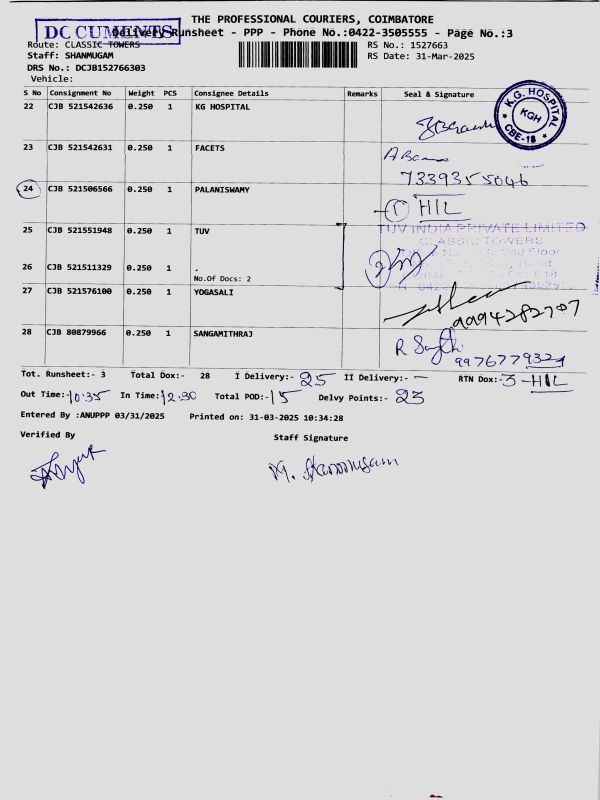 THE PROFESSIONAL COURIERS, COIMBATORE
DOCUMENTS
Delivery Runsheet - PPP - Phone No.:0422-3505555 - Page No.:3
Route: CLASSIC TOWERS
RS No.: 1527663
Staff: SHANMUGAM
RS Date: 31-Mar-2025
DRS No.: DCJB152766303
Vehicle:
S No Consignment No Weight PCS Consignee Details Remarks Seal & Signature
22 CJB 521542636 0.250 1 KG HOSPITAL
K.G. HOSPITAL
KGH
CBE-18
23 CJB 521542631 0.250 1 FACETS
7339355046
24 CJB 521506566 0.250 1 PALANISWAMY
1 HIL
25 CJB 521551948 0.250 1 TUV
TUV INDIA PRIVATE LIMITED
CLASSIC TOWERS
2nd Floor
Road
26 CJB 521511329 0.250 1 .
No.Of Docs: 2
27 CJB 521576100 0.250 1 YOGASALI
9994282707
28 CJB 80879966 0.250 1 SANGAMITHRAJ
9976779324
Tot. Runsheet:- 3 Total Dox:- 28 I Delivery:- 25 II Delivery:- - RTN Dox:- 3 - HIL
Out Time:- 10:35 In Time:- 12.30 Total POD:- 15 Delvy Points:- 23
Entered By :ANUPPP 03/31/2025 Printed on: 31-03-2025 10:34:28
Verified By
Staff Signature
M. Shanmugam